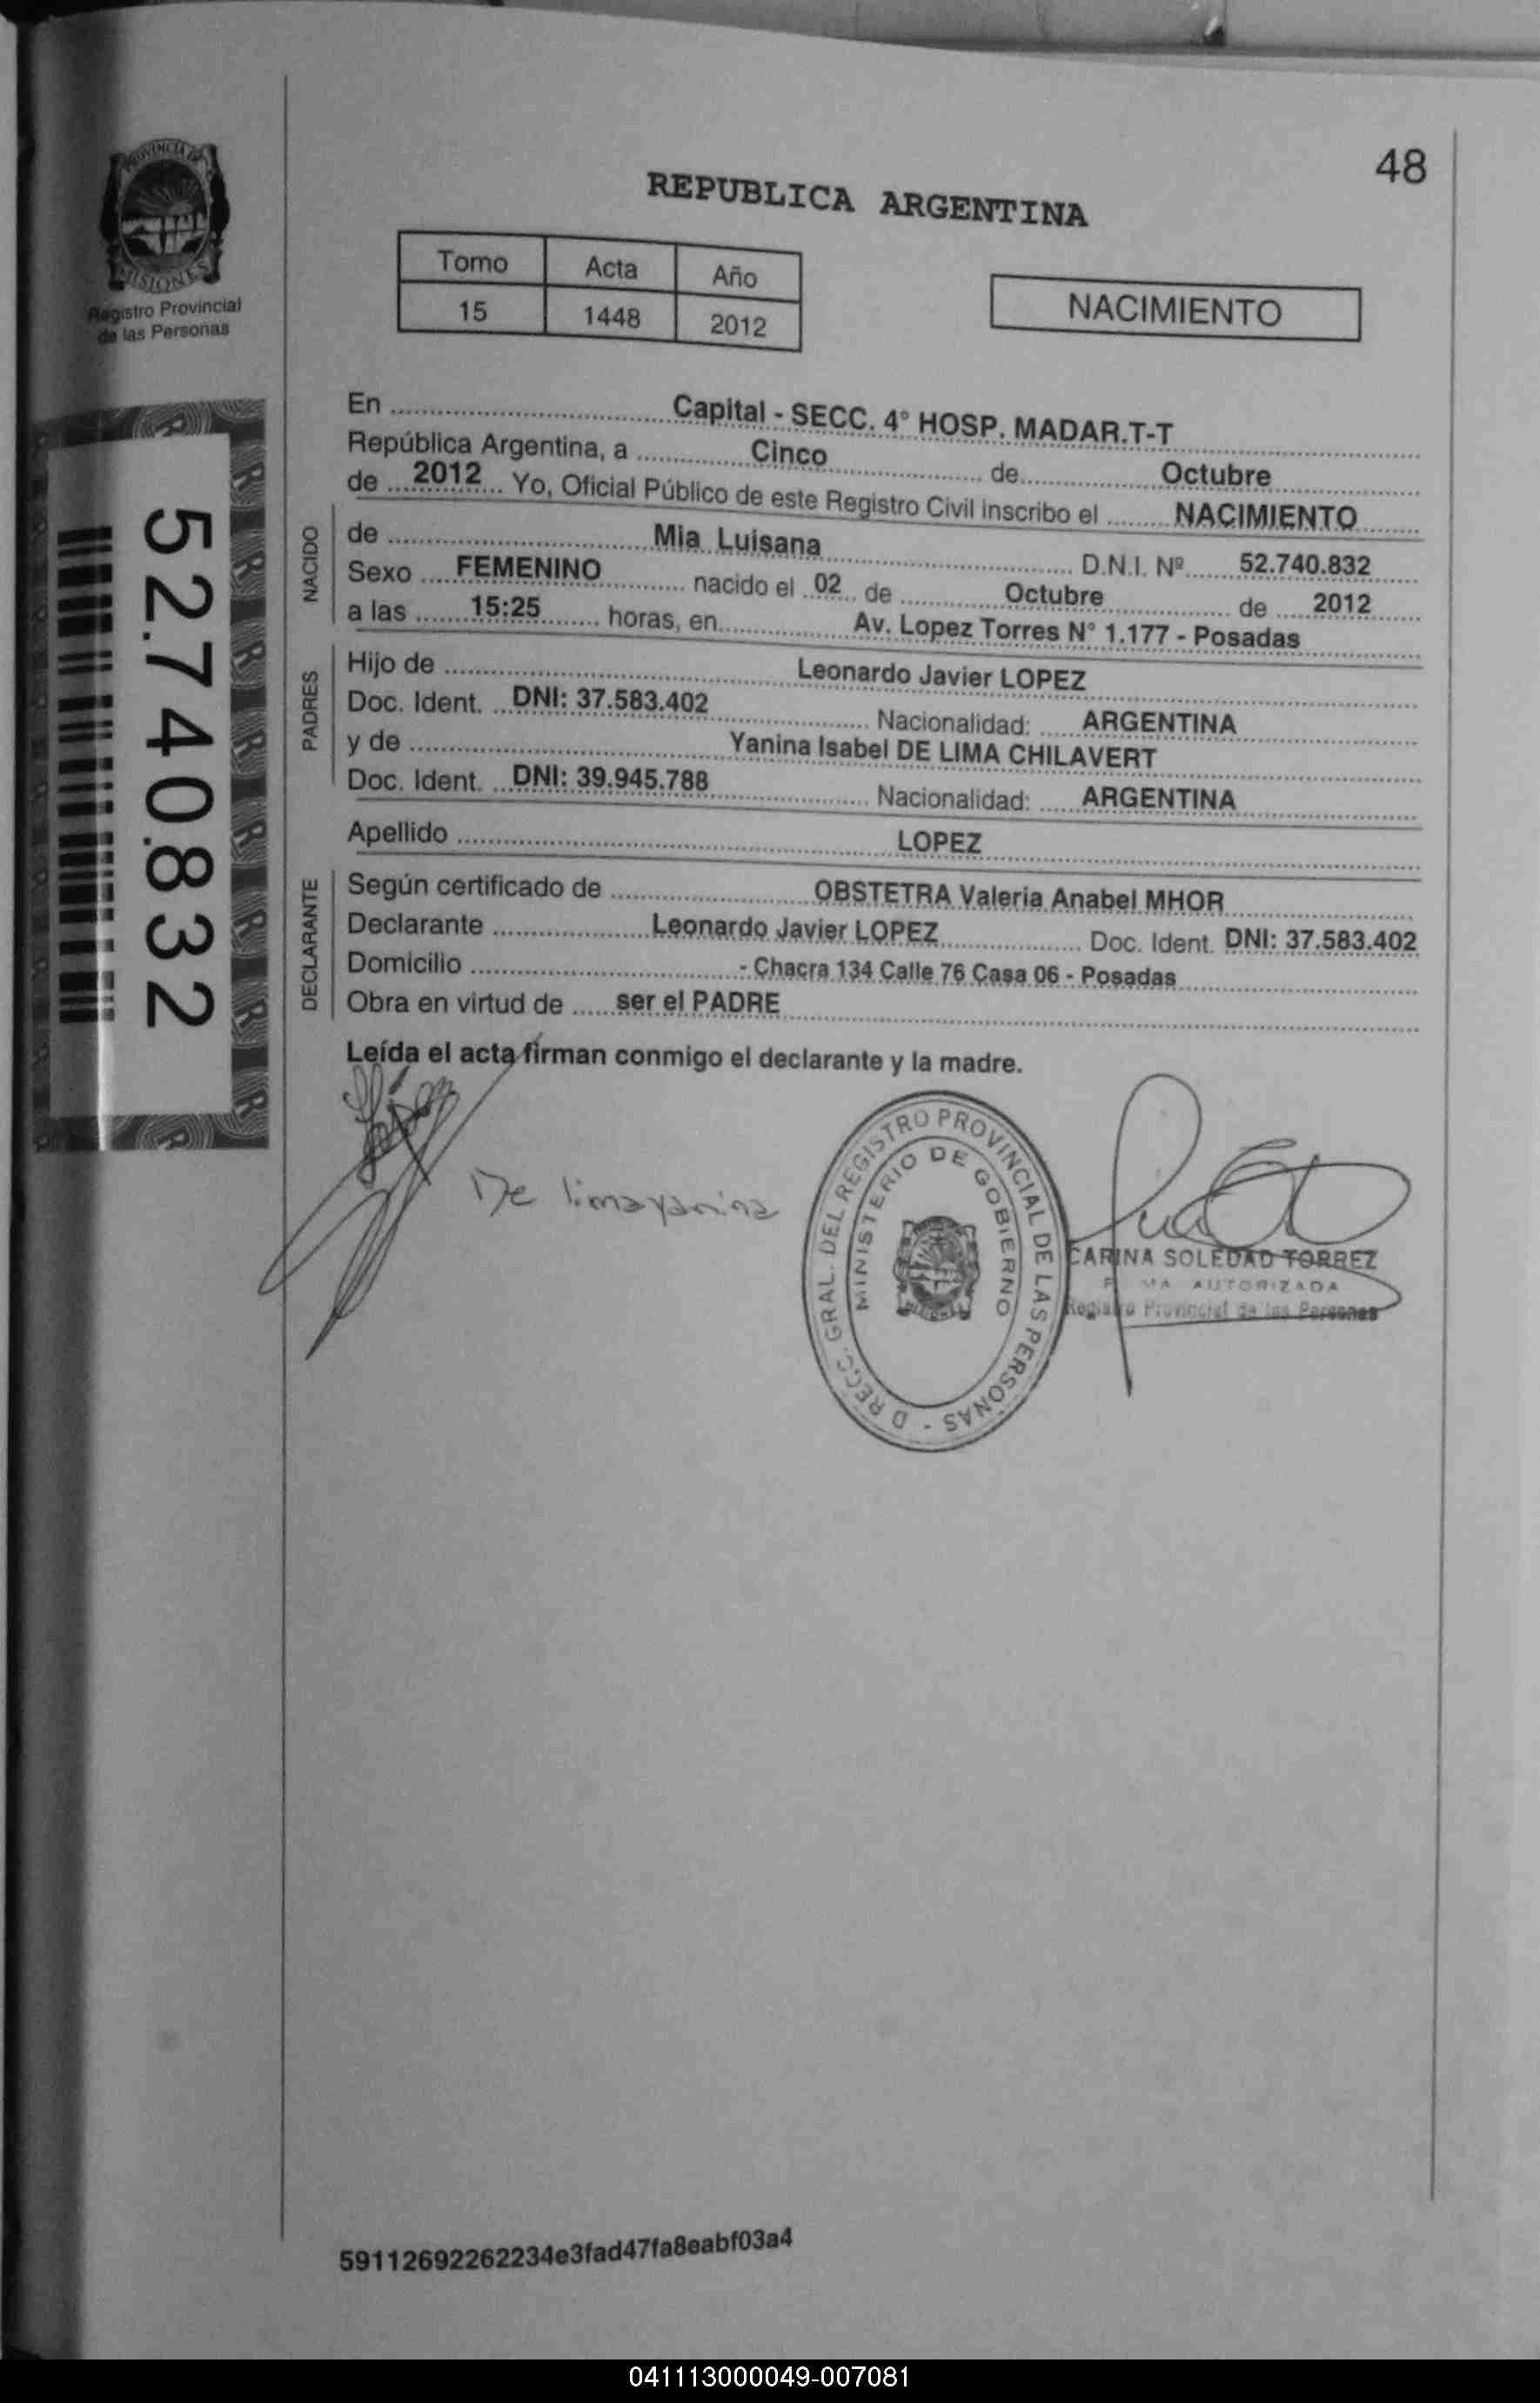 48
REPUBLICA ARGENTINA
PROVINCIA DE
MISIONES
Registro Provincial
de las Personas
Tomo Acta Año
15 1448 2012
NACIMIENTO
52.740.832
En ........ Capital - SECC. 4° HOSP. MADAR.T-T
República Argentina, a ........ Cinco ........ de ........ Octubre
de ... 2012 ... Yo, Oficial Público de este Registro Civil inscribo el ........ NACIMIENTO
NACIDO
de ........ Mia Luisana ........ D.N.I. Nº ...... 52.740.832
Sexo .... FEMENINO ........ nacido el .. 02 .. de ........ Octubre ........ de .... 2012
a las ...... 15:25 ........ horas, en ........ Av. Lopez Torres N° 1.177 - Posadas
PADRES
Hijo de ........ Leonardo Javier LOPEZ
Doc. Ident. ... DNI: 37.583.402 ........ Nacionalidad: ..... ARGENTINA
y de ........ Yanina Isabel DE LIMA CHILAVERT
Doc. Ident. ... DNI: 39.945.788 ........ Nacionalidad: ..... ARGENTINA
Apellido ........ LOPEZ
DECLARANTE
Según certificado de ........ OBSTETRA Valeria Anabel MHOR
Declarante ........ Leonardo Javier LOPEZ ........ Doc. Ident. DNI: 37.583.402
Domicilio ........ - Chacra 134 Calle 76 Casa 06 - Posadas
Obra en virtud de ...... ser el PADRE
Leída el acta firman conmigo el declarante y la madre.
De lima yanina
GRAL. DEL REGISTRO PROVINCIAL DE LAS PERSONAS -
MINISTERIO DE GOBIERNO
CARINA SOLEDAD TORREZ
AUTORIZADA
Registro Provincial de las Personas
59112692262234e3fad47fa8eabf03a4
041113000049-007081